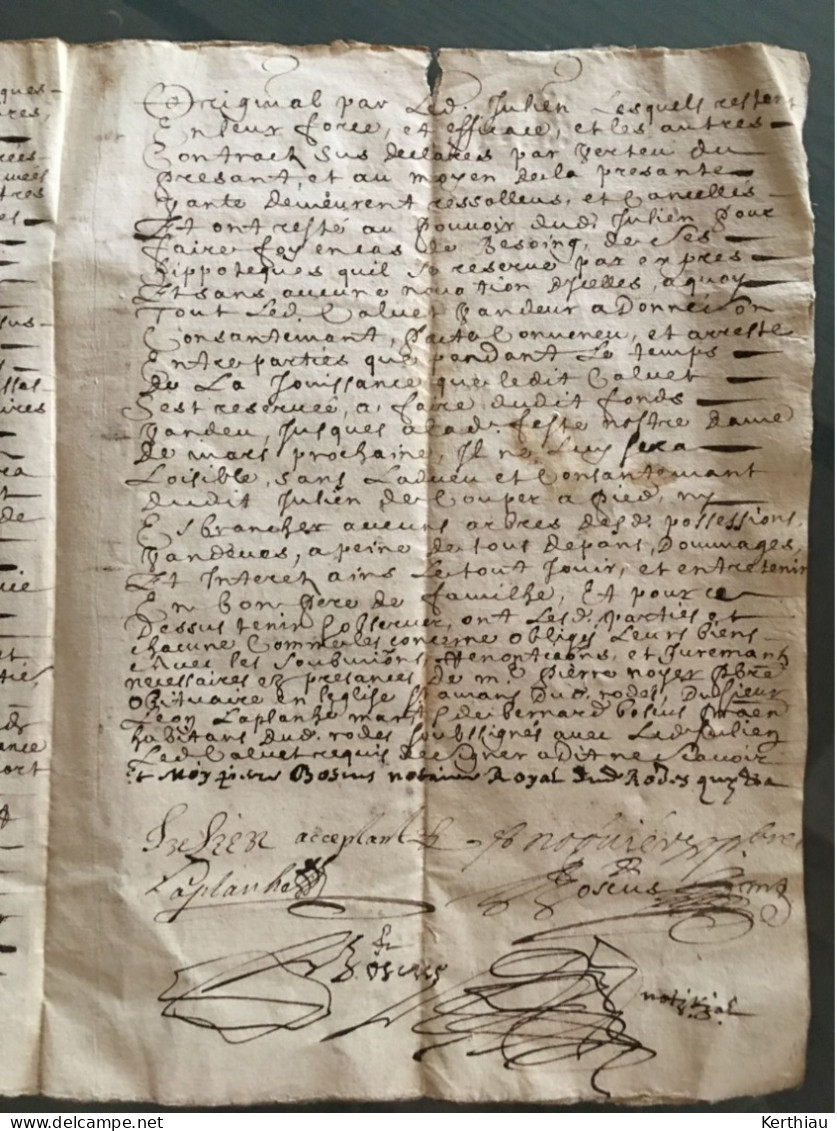 Original par Led. Julien Lesquels restent
En leur force, et efficace, et les autres
Contracts sus declarés par verteu du
Presant, et au moyen de la presante
Vante demeurent ressolleus, et Cancellés
Et ont resté au Pouvoir dud. Julien Pour
faire foy en cas de Besoing, de ses
hippoteques quil se reserve par expres
Et sans aucune novation dicelles, a quoy
Tout Led. Calvet Vandeur a Donné son
Consantemant, Pacte Conveneu, et arresté
Entre parties que pendant Le temps
de La Jouissance que ledit Calvet
Sest reservée, a faire dudit fonds
Vandeu, Jusques a lad. feste nostre dame
de mars prochaine, Il ne Luy sera
Loisible, sans Ladveu et Consantemant
dudit Julien de Couper a Pied, ny
Esbrancher aucuns arbres desd. possessions
Vandeues, a peine de tous depans, Dommages,
Et Interetz ains Le tout Jouir, et entretenir
En bon Pere de familhe, Et pour ce
Dessus tenir observer, ont Lesd. parties et
chacune Comme les concerne obligé Leurs biens
Avec les soubmitions, Renonctions, et Juremant
necessaires ez presances de mr. Pierre noyer Pbre
obituaire en leglise St amans Dud. rodes, Du sieur
Leon Laplanhe mar et de bernard bosius
habitans dud. rodes soubsignés avec Led. Julien
Led. Calvet requis de signer a dit ne scavoir
et Moy pierre Bosius notaire Royal dud Rodes
Julien acceptant
Laplanhe
Bosius
Bosius